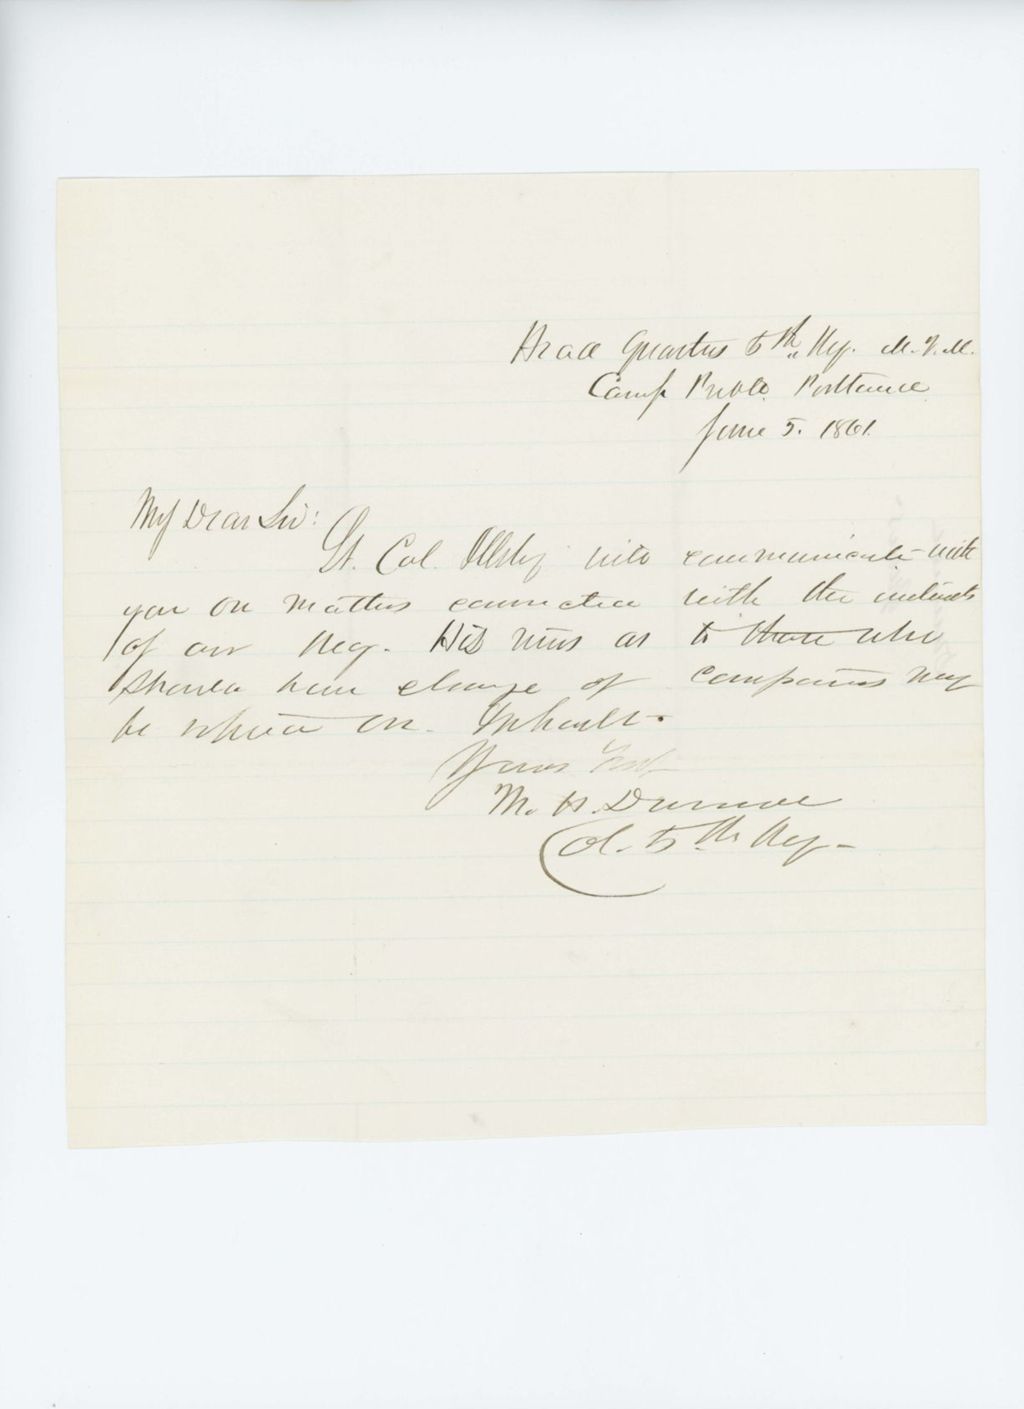 Head Quarters 5th Reg. M.V.M.
Camp Preble Portland
June 5. 1861.
My Dear Sir:
Lt. Col. Illsley will communicate with
you on matters connected with the interests
of our Reg. His views as to those who
should have charge of companies may
be relied on. In haste.
Yours Resp.
M. H. Dunnell
Col. 5th Reg.